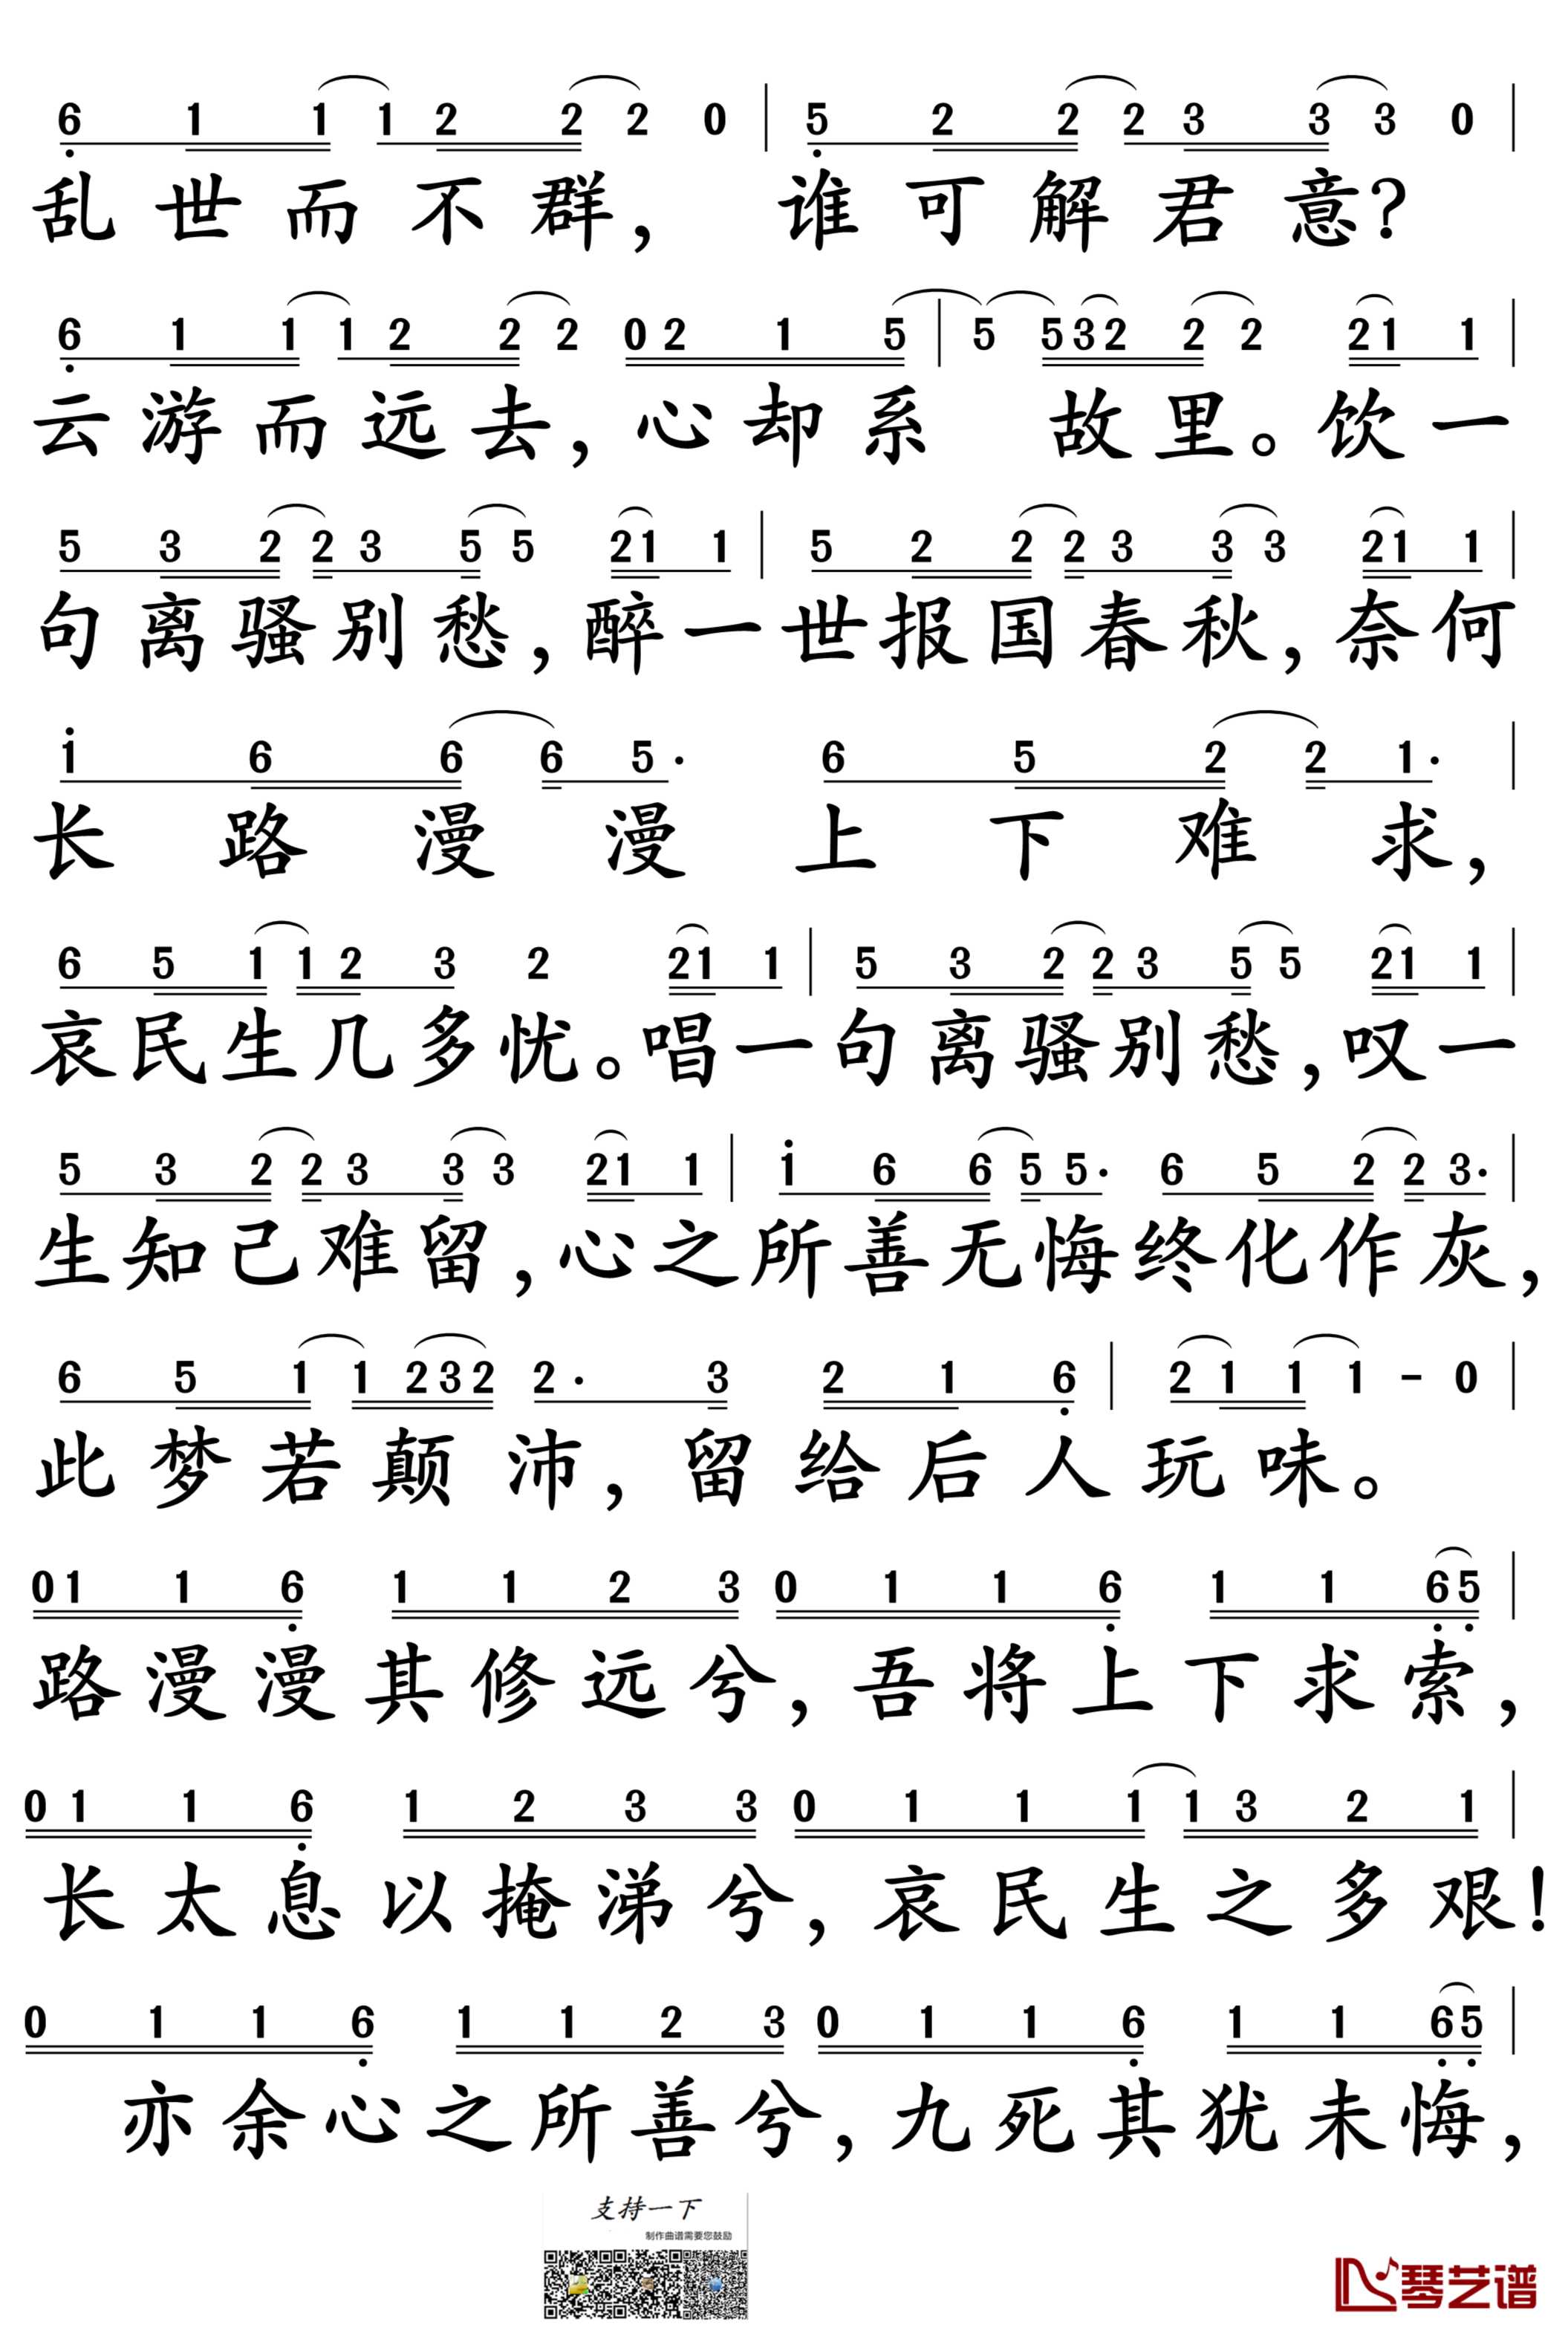 6 1 1 1 2 2 2 0 | 5 2 2 2 3 3 3 0 |
乱世而不群，谁可解君意？
6 1 1 1 2 2 2 0 2 1 5 | 5 5 3 2 2 2 2 1 1 |
云游而远去，心却系 故里。饮一
5 3 2 2 3 5 5 2 1 1 | 5 2 2 2 3 3 3 2 1 1 |
句离骚别愁，醉一世报国春秋，奈何
1 6 6 6 5· 6 5 2 2 1· |
长路漫漫上下难求，
6 5 1 1 2 3 2 2 1 1 | 5 3 2 2 3 5 5 2 1 1 |
哀民生几多忧。唱一句离骚别愁，叹一
5 3 2 2 3 3 3 2 1 1 | 1 6 6 5 5· 6 5 2 2 3· |
生知己难留，心之所善无悔终化作灰，
6 5 1 1 2 3 2 2· 3 2 1 6 | 2 1 1 1 - 0 |
此梦若颠沛，留给后人玩味。
0 1 1 6 1 1 2 3 0 1 1 6 1 1 6 5 |
路漫漫其修远兮，吾将上下求索，
0 1 1 6 1 2 3 3 0 1 1 1 1 3 2 1 |
长太息以掩涕兮，哀民生之多艰！
0 1 1 6 1 1 2 3 0 1 1 6 1 1 6 5 |
亦余心之所善兮，九死其犹未悔，
支持一下
制作曲谱需要您鼓励
琴艺谱